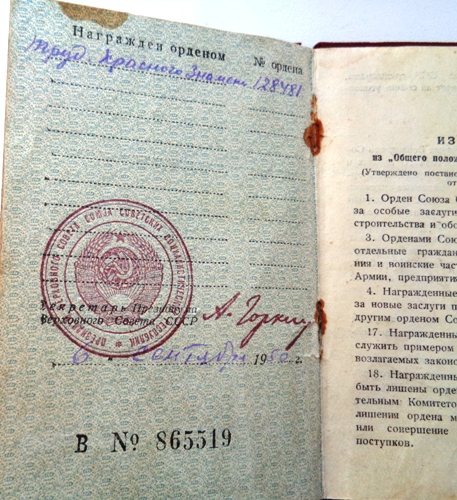 Награжден орденом № ордена
Труд. Красного Знамени 128481
Секретарь Президиума
Верховного Совета СССР А. Горкин
6 сентября 1950 г.
В № 865519
ИЗ
из „Общего полож
(Утверждено постано
от
1. Орден Союза
за особые заслуги
строительства и обо
3. Орденами Союз
отдельные граждан
ния и воинские част
Армии, предприятия
4. Награжденные
за новые заслуги п
другим орденом Со
17. Награжденны
служить примером
возлагаемых законо
18. Награжденны
быть лишены орде
тельным Комитето
лишения ордена м
или совершение
поступков.